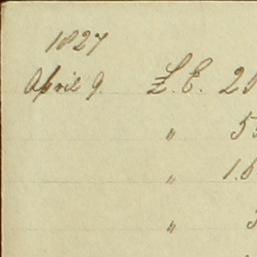 1827
April 9. L. E. 25
" 5
" 1.6
"